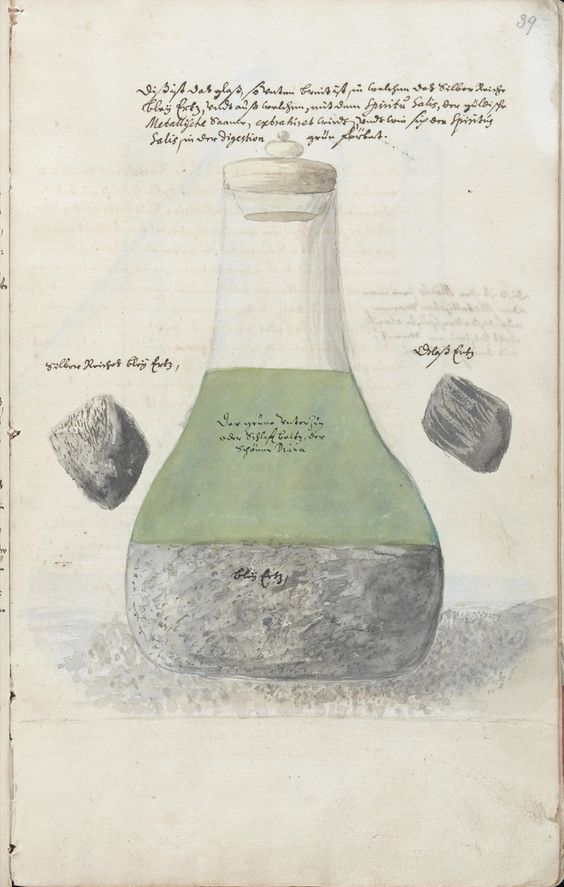 39
Diß ist daß glaß, so unten breit ist, in welchem das Silber Reiche
bleÿ Ertz, undt auß welchem, mit dem Spiritu Salis, der güldische
Metallische Saame, extrahiret wird, undt wie sich der Spiritus
Salis, in der digestion grün färbet.
Silber Reiches bleÿ Ertz,
Glaß Ertz
Der grüne
oder der
Schönen Diana
bleÿ Ertz,